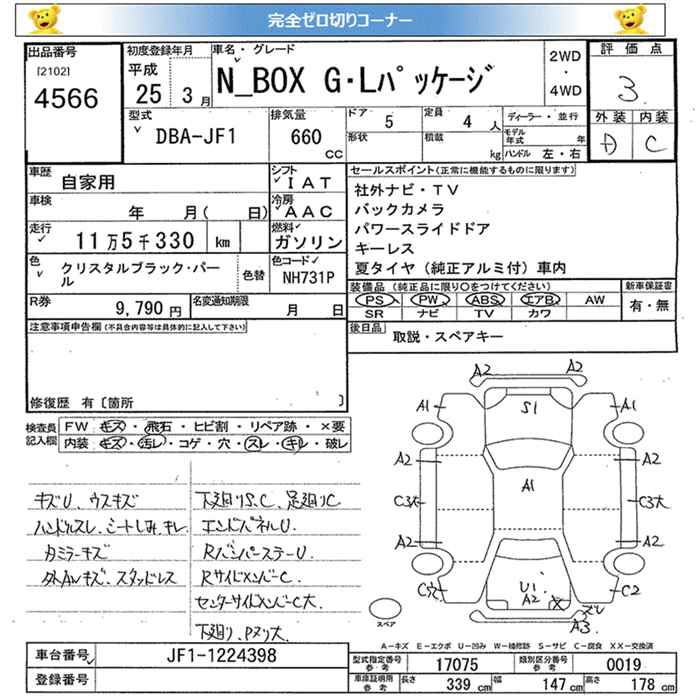 完全ゼロ切りコーナー
出品番号
[2102]
4566
初度登録年月
平成
25 3月
車名・グレード
N_BOX G・Lパッケージ
2WD
・
4WD
評価点
3
外装 内装
D C
型式
DBA-JF1
排気量
660
CC
ドア 5
定員 4 人
形状
積載 kg
ディーラー・並行
モデル年式 年
ハンドル 左・右
車歴 自家用
シフト
IAT
車検 年 月( 日)
冷房
AAC
走行 11万5千330 km
燃料
ガソリン
色 クリスタルブラック・パール
色替
色コード
NH731P
R券 9,790円
名変通知期限 月 日
セールスポイント(正常に機能するものに限ります)
社外ナビ・TV
バックカメラ
パワースライドドア
キーレス
夏タイヤ(純正アルミ付)車内
装備品(純正品に限り○をつけてください)
PS PW ABS エアB AW
SR ナビ TV カワ
新車保証書
有・無
後日品 取説・スペアキー
注意事項申告欄(不具合内容等は具体的に記入して下さい)
修復歴 有〔箇所 〕
検査員記入欄
FW キズ・飛石・ヒビ割・リペア跡・×要
内装 キズ・汚レ・コゲ・穴・スレ・キレ・破レ
キズU、ウスキズ
ハンドルスレ、シートしみ、キレ
カミラーキズ
外AWキズ、スタッドレス
下廻りS.C、足廻りC
エンドパネルU.
RバンパーステーU.
RサイドメンバーC.
センターサイドメンバーC大.
下廻り、Pヌリ大.
A2
A1
S1
A1
A2
A2
C3大
A1
C3大
A2
A2
C穴
U1
A2
X
C2
ズレ
A3
スペア
A-キズ E-エクボ U-凹み W-補修跡 S-サビ C-腐食 XX-交換済
車台番号 JF1-1224398
登録番号
型式指定番号
参考
17075
類別区分番号
参考
0019
車庫証明用
参考
長さ 339 cm 幅 147 cm 高さ 178 cm